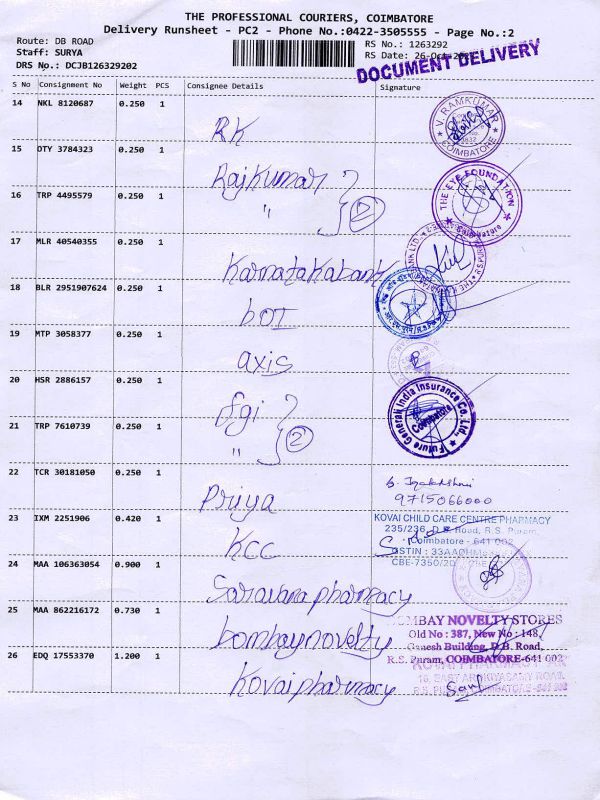 THE PROFESSIONAL COURIERS, COIMBATORE
Delivery Runsheet - PC2 - Phone No.:0422-3505555 - Page No.:2
Route: DB ROAD
RS No.: 1263292
Staff: SURYA
RS Date: 26-Oct
DRS No.: DCJB126329202
DOCUMENT DELIVERY
S No Consignment No Weight PCS Consignee Details Signature
14 NKL 8120687 0.250 1
RK
V. RAMKUMAR
COIMBATORE
15 OTY 3784323 0.250 1
Rajkumar
THE EYE FOUNDATION
Coimbatore
16 TRP 4495579 0.250 1
" 2
17 MLR 40540355 0.250 1
Karnataka bank
18 BLR 2951907624 0.250 1
BOI
19 MTP 3058377 0.250 1
axis
20 HSR 2886157 0.250 1
fgi
Future Generali India Insurance Co. Ltd.
Coimbatore
21 TRP 7610739 0.250 1
" 2
22 TCR 30181050 0.250 1
Priya
9715066000
23 IXM 2251906 0.420 1
KCC
KOVAI CHILD CARE CENTRE PHARMACY
235/236, D.B. Road, R.S. Puram,
Coimbatore - 641 002
GSTIN : 33AAOHM
CBE-7350/20
24 MAA 106363054 0.900 1
Saravana pharmacy
25 MAA 862216172 0.730 1
bombay novelty
BOMBAY NOVELTY STORES
Old No : 387, New No : 148,
Ganesh Building, D.B. Road,
R.S. Puram, COIMBATORE-641 002
26 EDQ 17553370 1.200 1
Kovai pharmacy
16, EAST AROKIYASAMY ROAD,
R.S. PURAM, COIMBATORE-641 002